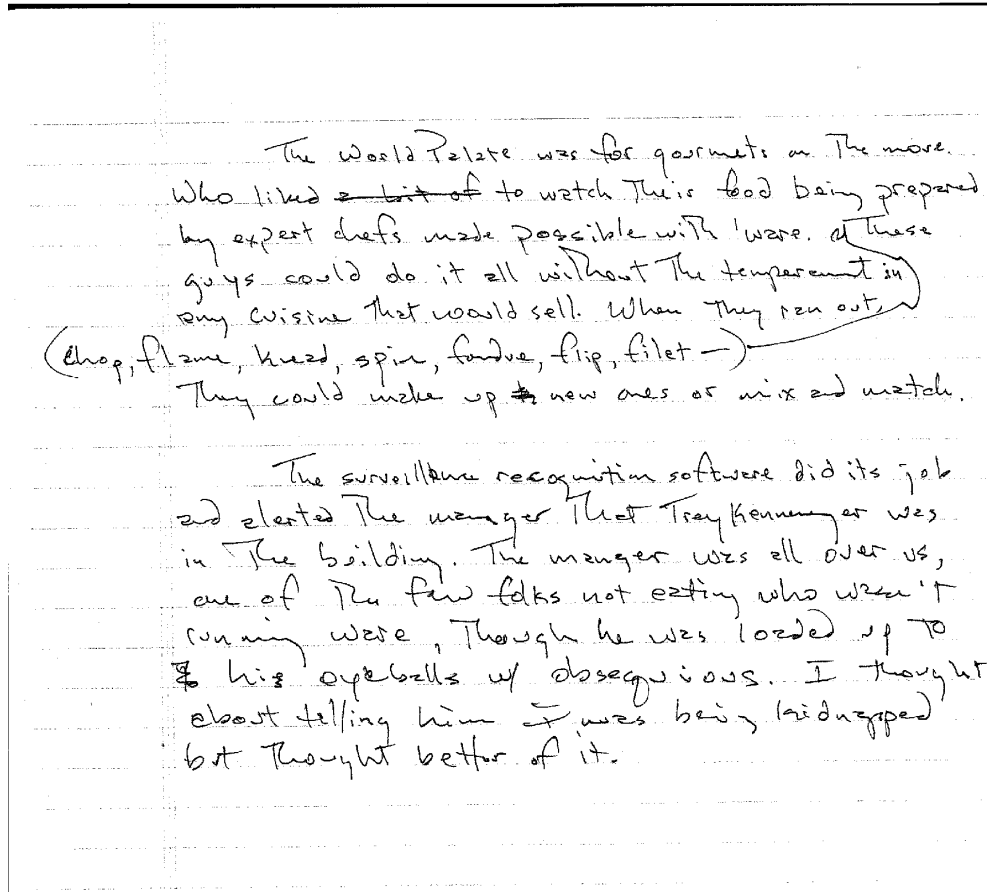 The World Palate was for gourmets on The move.
Who liked a bit of to watch Their food being prepared
by expert chefs made possible with 'ware. These
guys could do it all without The temperament in
any cuisine that would sell. When They ran out,
(chop, flame, knead, spin, fondue, flip, filet —)
They could make up new ones or mix and match.
The surveillance recognition software did its job
and alerted The manager That Trey Kennemyer was
in The building. The manger was all over us,
one of The few folks not eating who wasn't
running ware, Though he was loaded up To
his eyeballs w/ obsequious. I thought
about telling him I was being kidnapped
but Thought better of it.